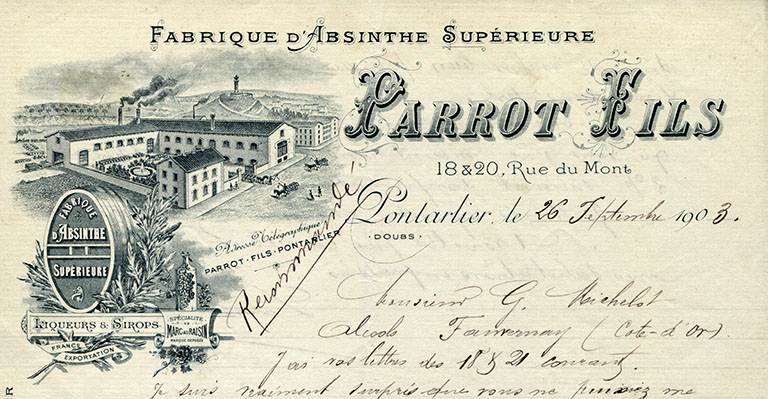 FABRIQUE D'ABSINTHE SUPÉRIEURE
PARROT FILS
18 & 20, Rue du Mont
Pontarlier, le 26 Septembre 1903.
DOUBS
Adresse Télégraphique
PARROT-FILS-PONTARLIER
Recommandé
FABRIQUE
D'ABSINTHE
SUPÉRIEURE
LIQUEURS & SIROPS
FRANCE
EXPORTATION
SPÉCIALITÉ
DE
MARC DE RAISIN
MARQUE DÉPOSÉE
Monsieur G. Michelot
alcools Fauverney (Côte-d'Or)
J'ai vos lettres des 18 & 21 courant.
Je suis vraiment surpris que vous ne puissiez me